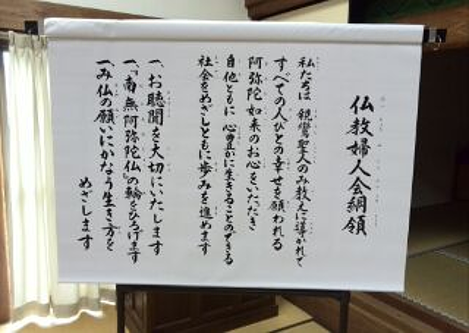 仏教婦人会綱領
私たちは 親鸞聖人のみ教えに導かれて
すべての人びとの幸せを願われる
阿弥陀如来のお心をいただき
自他ともに 心豊かに生きることのできる
社会をめざしともに歩みを進めます
一、お聴聞を大切にいたします
一、「南無阿弥陀仏」の輪をひろげます
一、み仏の願いにかなう生き方を
めざします